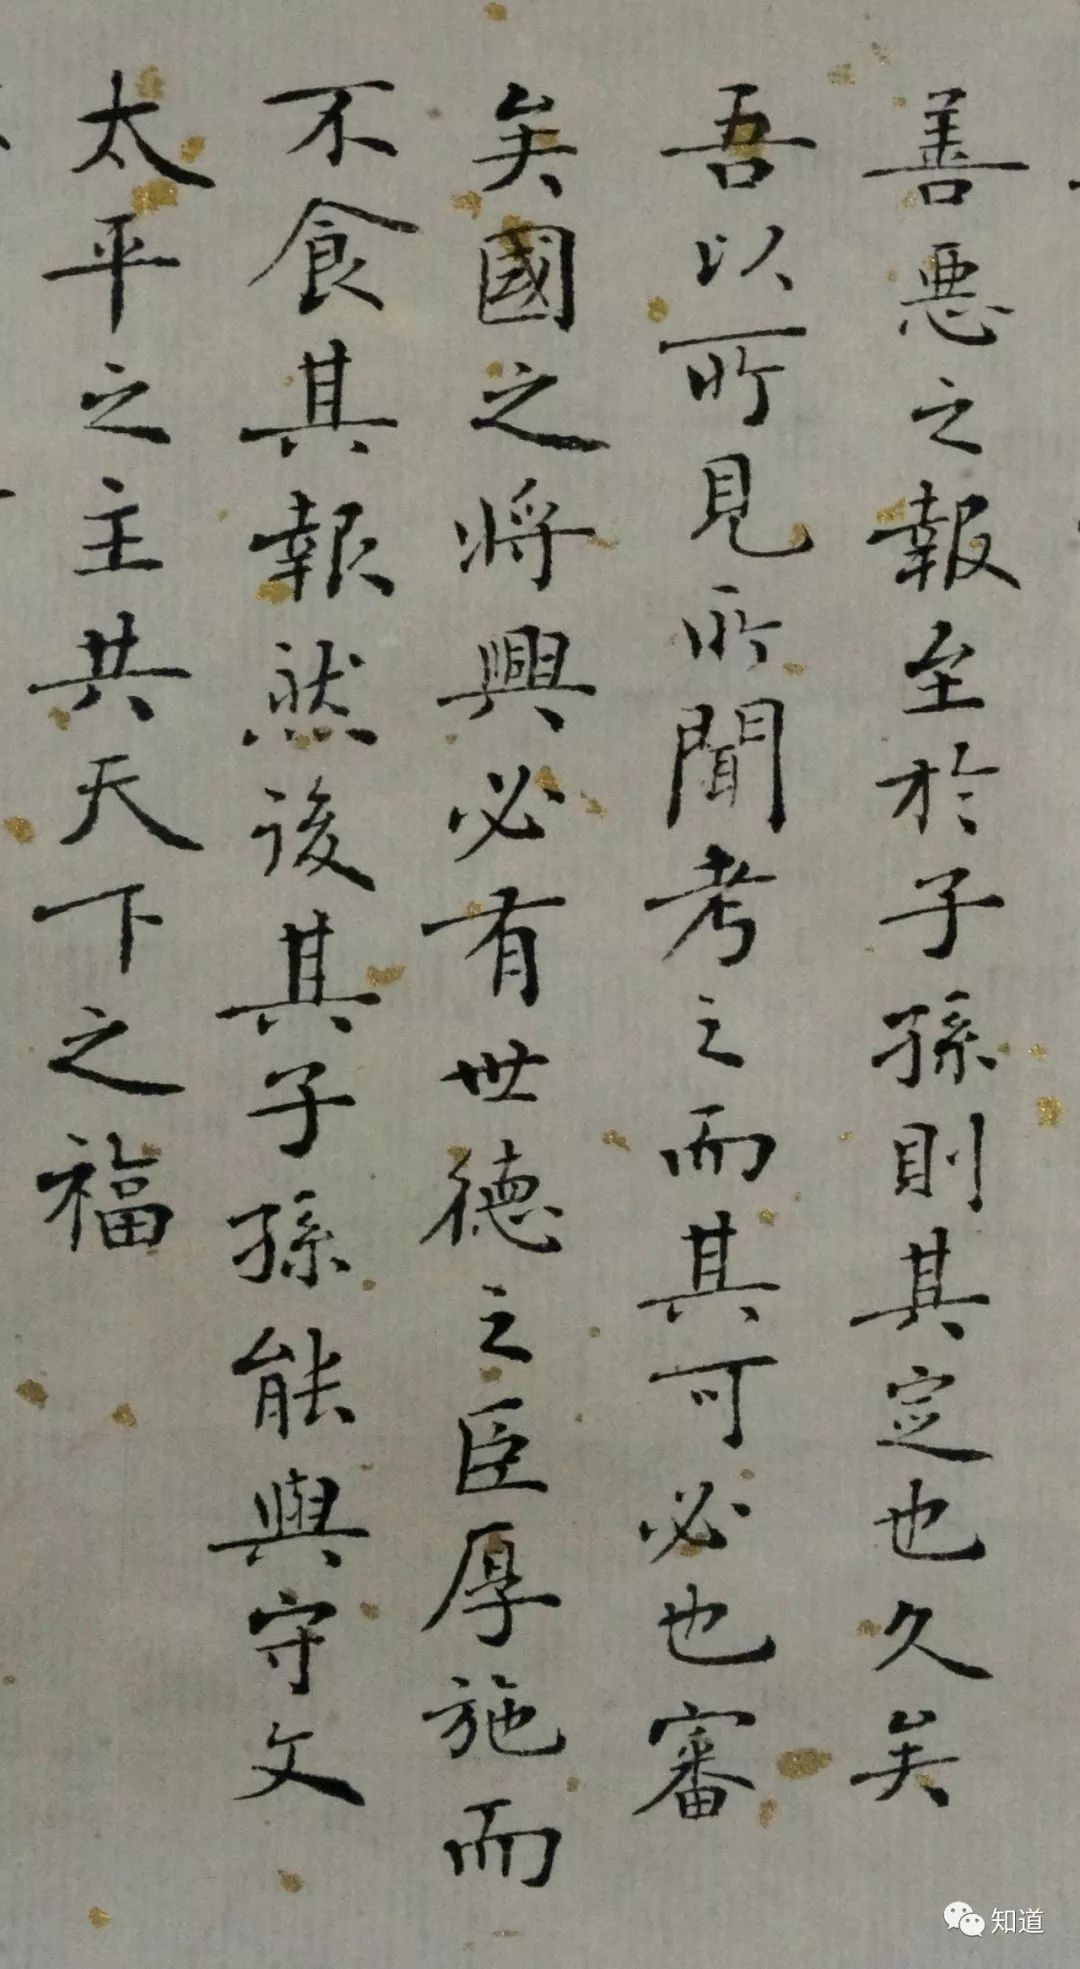 善惡之報至於子孫則其定也久矣
吾以所見所聞考之而其可必也審
矣國之將興必有世德之臣厚施而
不食其報然後其子孫能與守文
太平之主共天下之福
知道